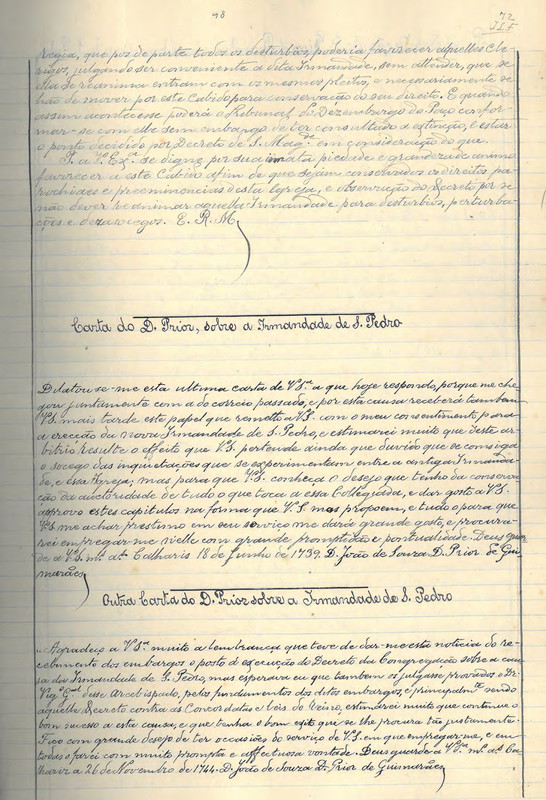 98
72
regia, que poz de parte todos os disturbios, poderia favorecer aquelles Cle-
rigos, julgando ser conveniente a dita Irmandade, sem attender, que se
ella se reanima entram com os mesmos pleitos, e necessariamente se
hão de mover por este Cabido para conservação do seu direito. E quando
assim acontecesse poderá o Tribunal do Dezembargo do Paço confor-
mar-se com elle sem embargo de ter consultado a extinção, e estar
o ponto decidido por Decreto de S. Magde. em consideração do que
P. a V. Exª. se digne por sua innata piedade e grandeza de animo
favorecer a este Cabido afim de que sejam conservados os direitos pa-
rochiaes e preeminencias desta Igreja, e observação do Decreto por se
não dever reanimar aquella Irmandade para disturbios, perturba-
ções e dezasocegos. E. R. M.
Carta do D. Prior, sobre a Irmandade de S. Pedro
Dilatou-se-me esta ultima carta de V. Sª. a que hoje respondo, porque me che-
gou juntamente com a do correio passado, e por esta causa receberá tambem
V. S. mais tarde este papel que remetto a V. S. com o meu consentimento para
a erecção da nova Irmandade de S. Pedro, e estimarei muito que deste ar-
bitrio resulte o effeito que V. S. pertende ainda que duvido que se consiga
o socego das inquietações que se experimentam entre a antiga Irmanda-
de, e essa Igreja; mas para que V. S. conheça o desejo que tenho da conserva-
ção da auctoridade de tudo o que toca a essa Collegiada, e dar gosto a V. S.
approvo estes capitulos na forma que V. S. mos propoem, e tudo o para que
V. S. me achar prestimo em seu serviço me dará grande gosto, e procura-
rei empregar-me nelle com grande promptidão e pontualidade. Deus guar-
de a V. Sª. m. at. Calhariz 18 de Junho de 1739. D. João de Souza D. Prior de Gui-
marães
Outra Carta do D. Prior sobre a Irmandade de S. Pedro
Agradeço a V. Sª. muito a lembrança que teve de dar-me esta noticia do re-
cebimento dos embargos o posto d'execução do Decreto da Congregação sobre a cau-
sa da Irmandade de S. Pedro, mas esperava eu que tambem os julgasse provados o Dr.
Vigº. Gal. desse Arcebispado, pelos fundamentos dos ditos embargos, e principalmte. sendo
aquelle Decreto contra as Concordatas e Leis do reino, estimarei muito que continue o
bom sucesso a esta causa, e que tenha o bom exito que se lhe procura tão justamente.
Fico com grande desejo de ter occasiões do serviço de V. S. em que empregar-me, e em
todas o farei com muito prompta e affectuosa vontade. Deus guarde a V. Sª. m. at. Ca-
lhariz a 26 de Novembro de 1744. D. João de Souza D. Prior de Guimarães